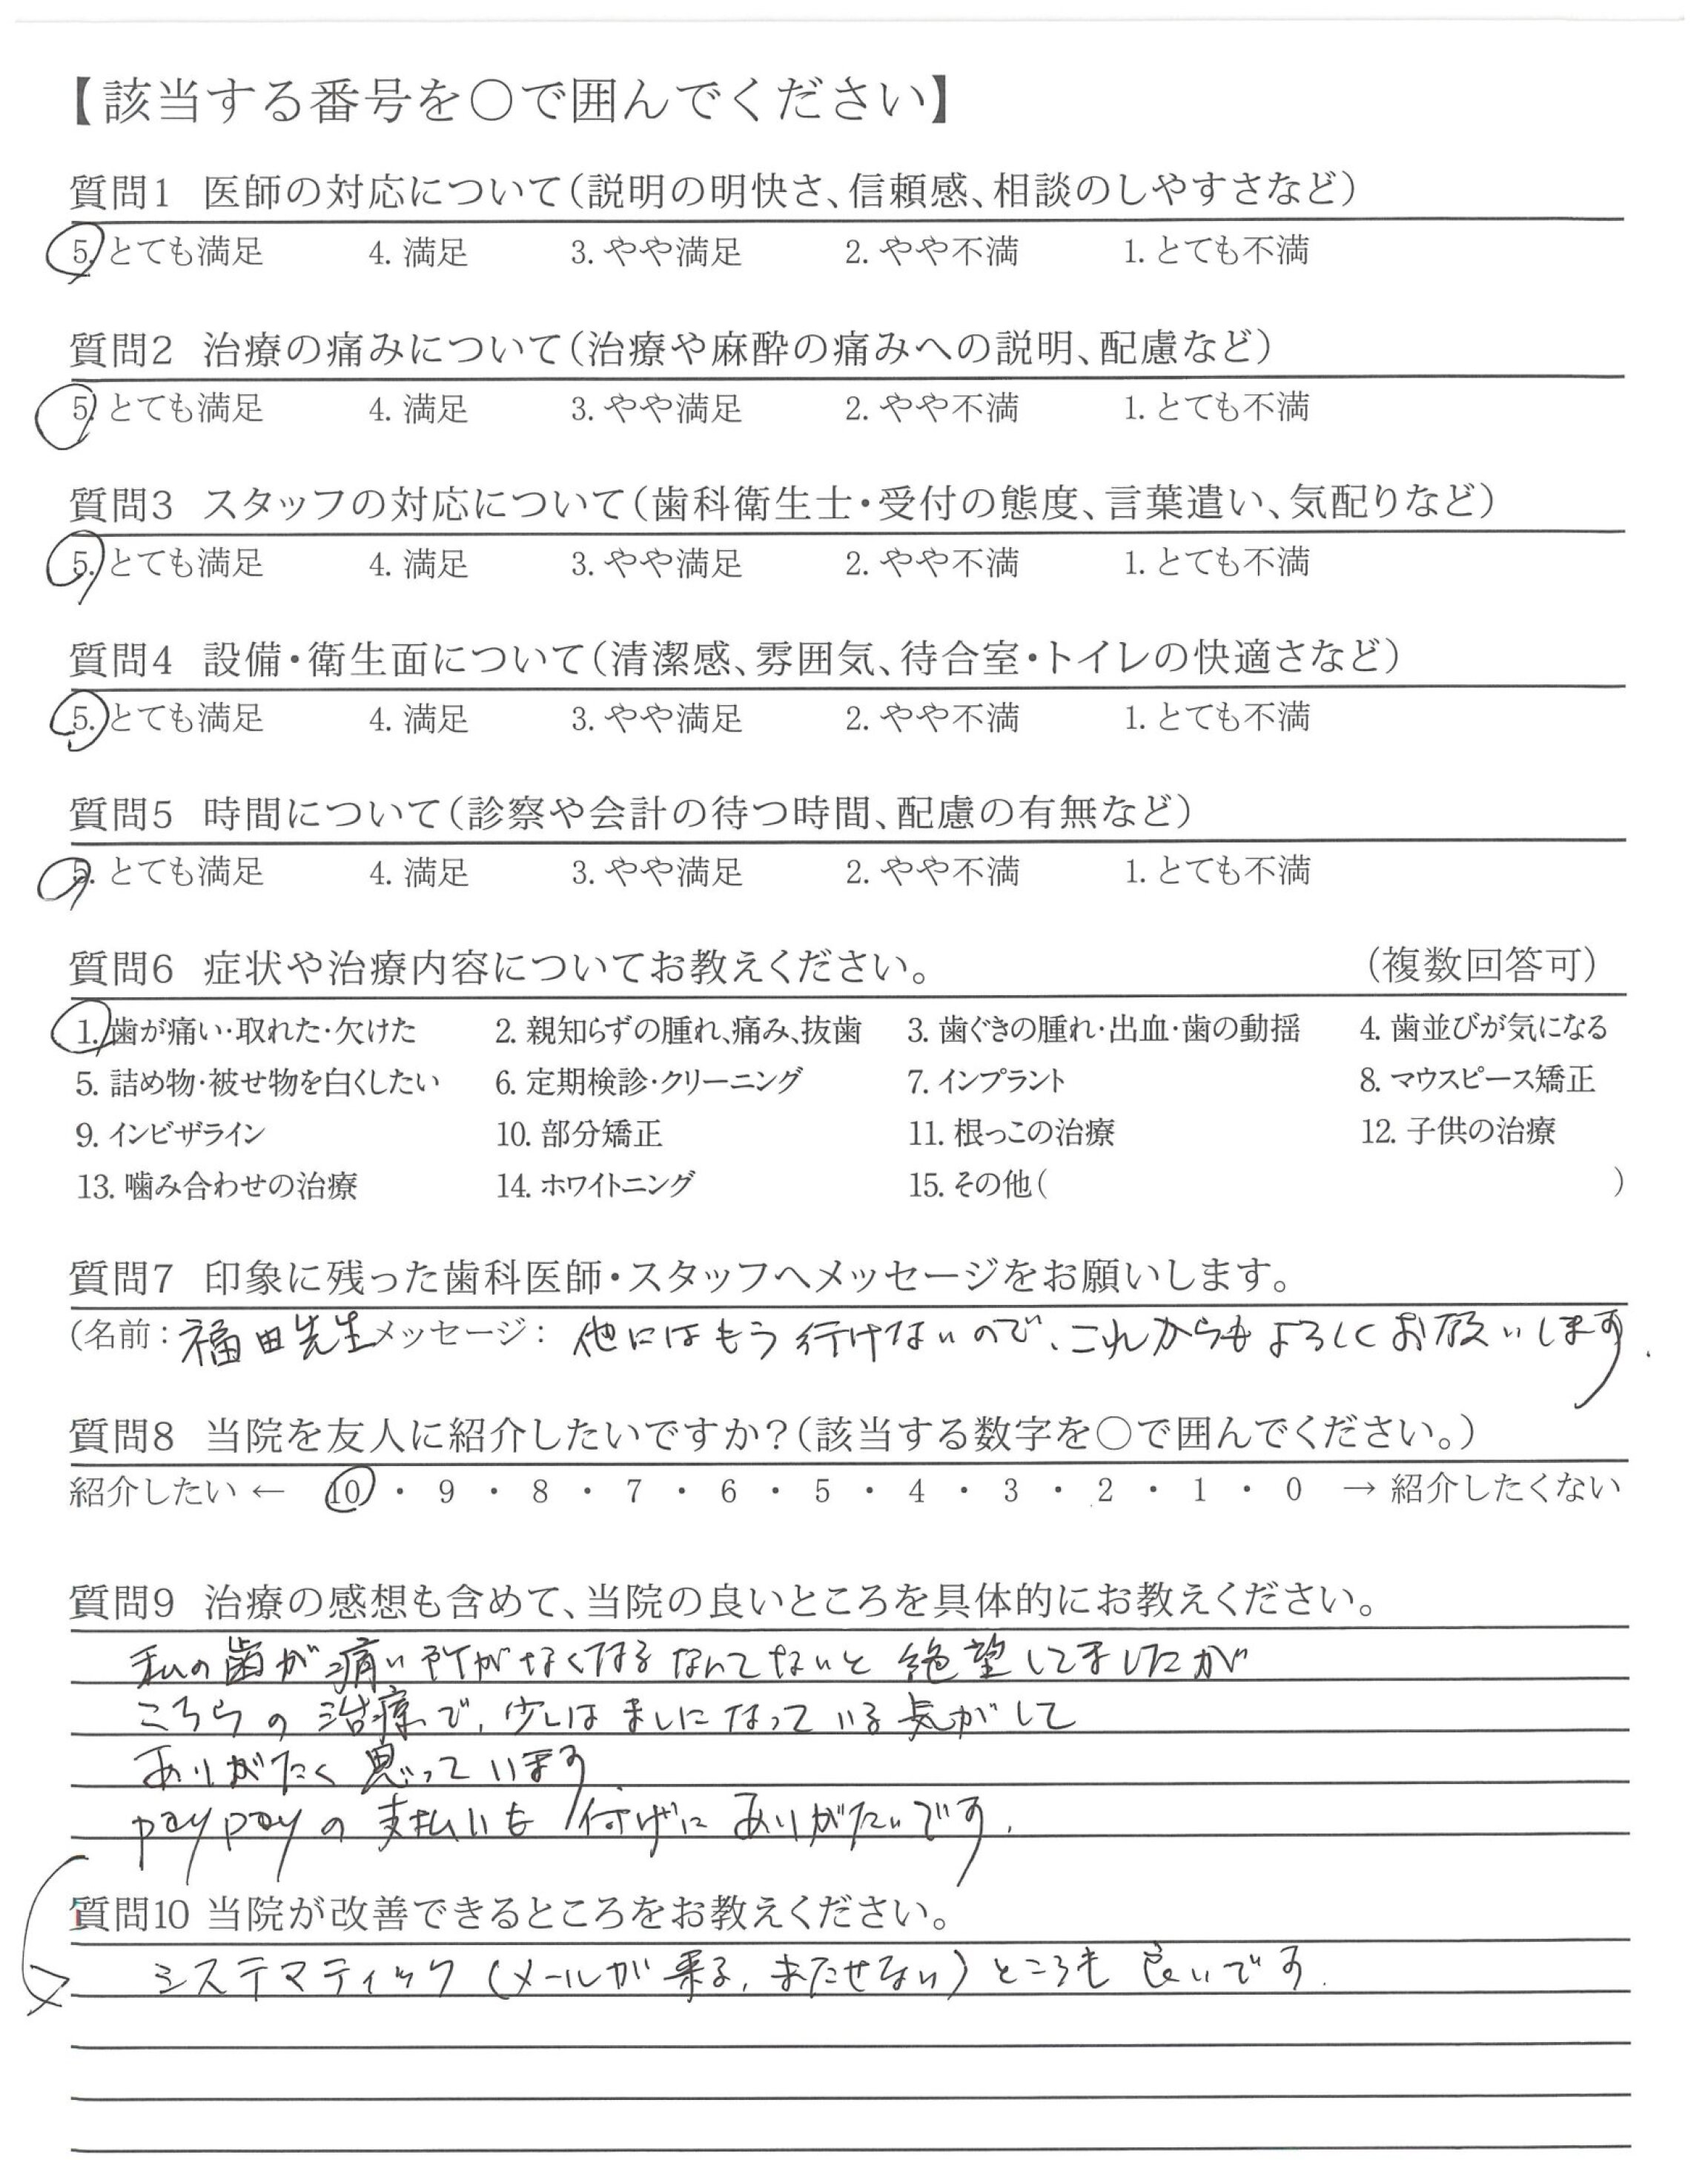 【該当する番号を〇で囲んでください】
質問1 医師の対応について(説明の明快さ、信頼感、相談のしやすさなど)
5. とても満足 4. 満足 3. やや満足 2. やや不満 1. とても不満
質問2 治療の痛みについて(治療や麻酔の痛みへの説明、配慮など)
5. とても満足 4. 満足 3. やや満足 2. やや不満 1. とても不満
質問3 スタッフの対応について(歯科衛生士・受付の態度、言葉遣い、気配りなど)
5. とても満足 4. 満足 3. やや満足 2. やや不満 1. とても不満
質問4 設備・衛生面について(清潔感、雰囲気、待合室・トイレの快適さなど)
5. とても満足 4. 満足 3. やや満足 2. やや不満 1. とても不満
質問5 時間について(診察や会計の待つ時間、配慮の有無など)
5. とても満足 4. 満足 3. やや満足 2. やや不満 1. とても不満
質問6 症状や治療内容についてお教えください。 (複数回答可)
1. 歯が痛い・取れた・欠けた 2. 親知らずの腫れ、痛み、抜歯 3. 歯ぐきの腫れ・出血・歯の動揺 4. 歯並びが気になる
5. 詰め物・被せ物を白くしたい 6. 定期検診・クリーニング 7. インプラント 8. マウスピース矯正
9. インビザライン 10. 部分矯正 11. 根っこの治療 12. 子供の治療
13. 噛み合わせの治療 14. ホワイトニング 15. その他( )
質問7 印象に残った歯科医師・スタッフへメッセージをお願いします。
(名前:福田先生 メッセージ: 他にはもう行けないので、これからもよろしくお願いします.
質問8 当院を友人に紹介したいですか?(該当する数字を〇で囲んでください。)
紹介したい ← 10 ・ 9 ・ 8 ・ 7 ・ 6 ・ 5 ・ 4 ・ 3 ・ 2 ・ 1 ・ 0 → 紹介したくない
質問9 治療の感想も含めて、当院の良いところを具体的にお教えください。
私の歯が痛い所がなくなるなんてないと絶望してましたが
こちらの治療で、少しはましになっている気がして
ありがたく思っています.
paypayの支払いも ありがたいです.
質問10 当院が改善できるところをお教えください。
システマティック(メールが来る、またせない)ところも良いです.